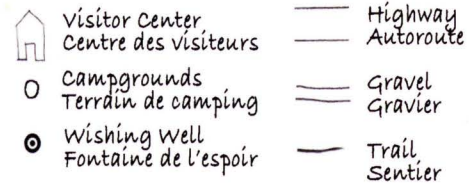 Visitor Center
Centre des visiteurs
Campgrounds
Terrain de camping
Wishing Well
Fontaine de l'espoir
Highway
Autoroute
Gravel
Gravier
Trail
Sentier